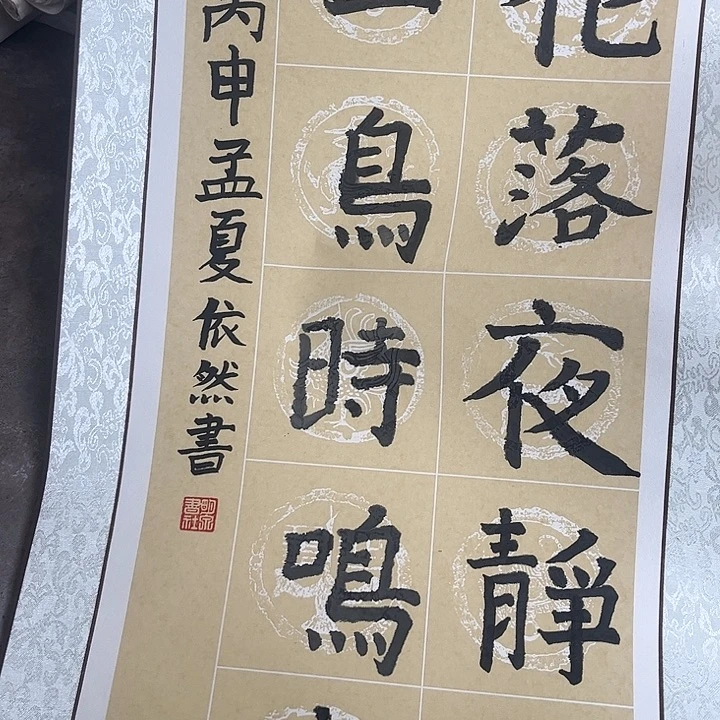 花落夜靜
鳥時鳴
丙申孟夏依然書